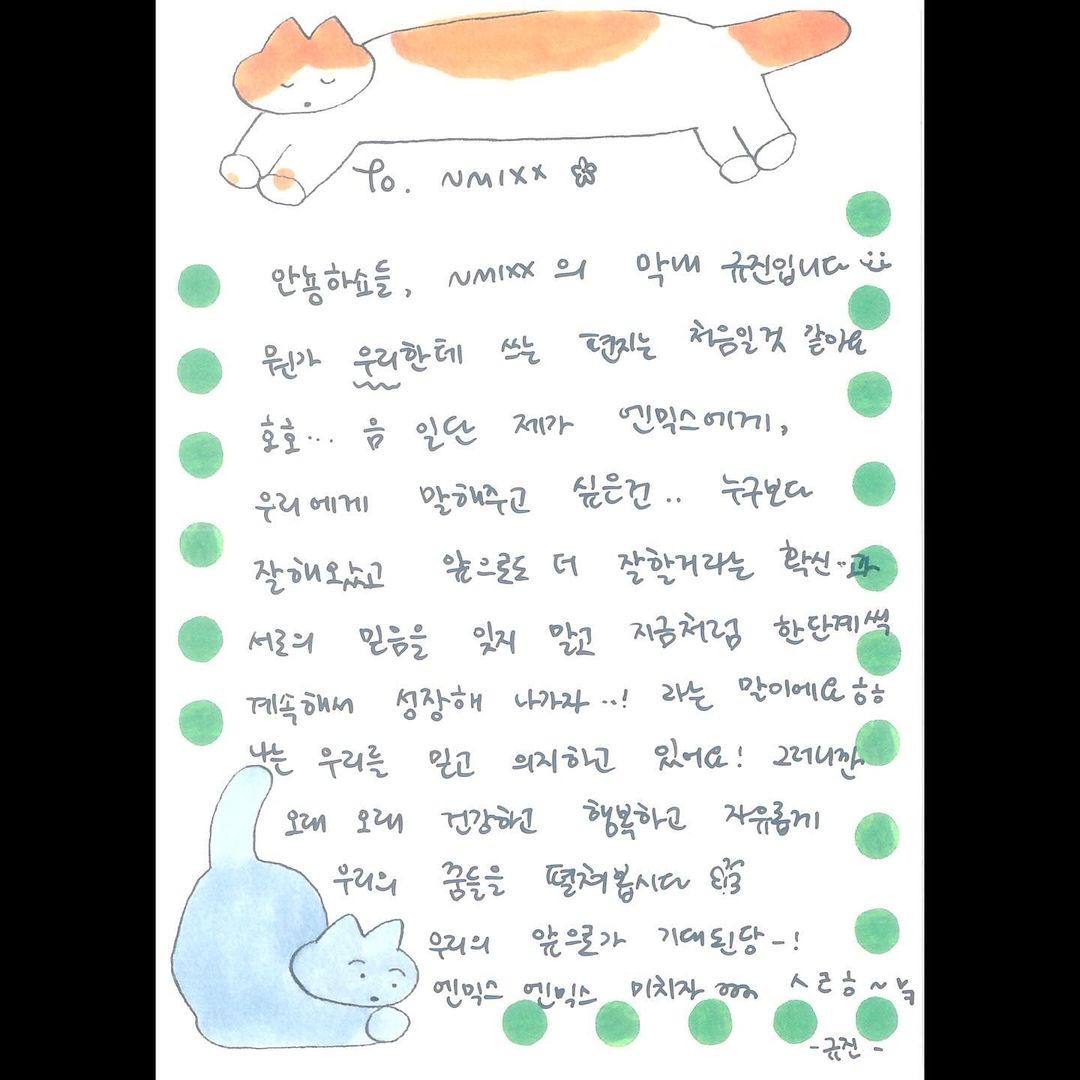 To. NMIXX
안뇽하쇼들, NMIXX의 막내 규진입니다
뭔가 우리한테 쓰는 편지는 처음일것 같아요
호호... 음 일단 제가 엔믹스에게,
우리에게 말해주고 싶은건.. 누구보다
잘해왔고 앞으로도 더 잘할거라는 확신..과
서로의 믿음을 잊지 말고 지금처럼 한단계씩
계속해서 성장해 나가자..! 라는 말이에요ㅎㅎ
나는 우리를 믿고 의지하고 있어요! 그러니깐
오래 오래 건강하고 행복하고 자유롭게
우리의 꿈들을 펼쳐봅시다
우리의 앞으로가 기대된당-!
엔믹스 엔믹스 미치자 ㅅㄹㅎ~
-규진-